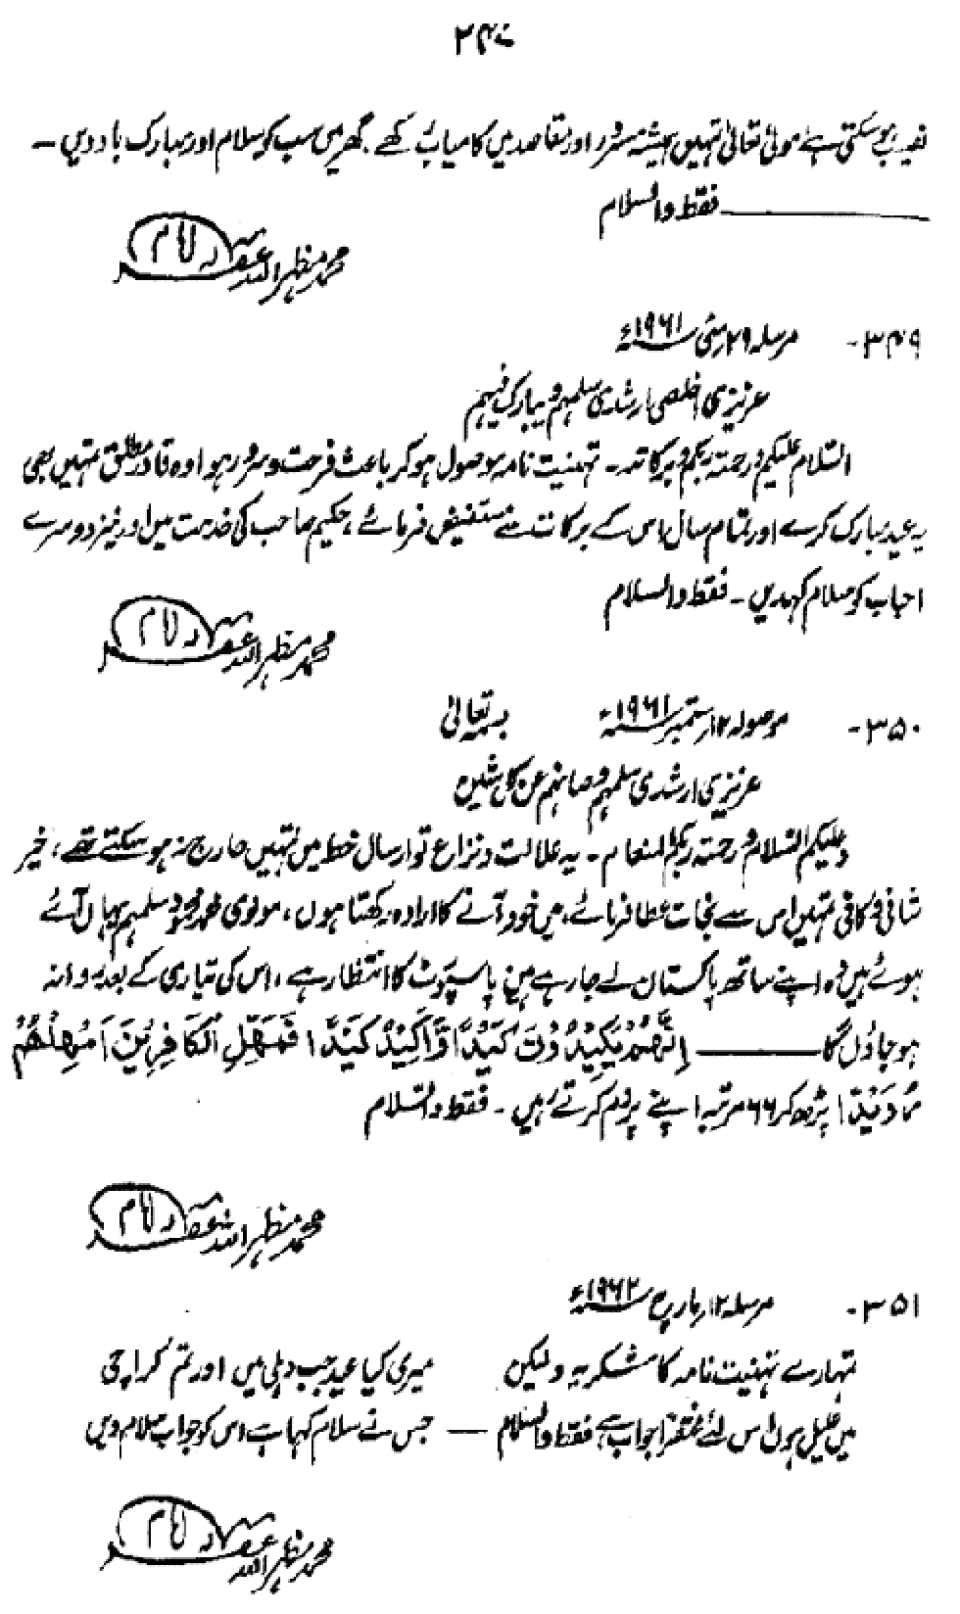 ۲۴۷
نصیب ہو سکتی ہے مولیٰ تعالیٰ تمہیں ہمیشہ مسرور اور مقاصد میں کامیاب رکھے گھر میں سب کو سلام اور مبارک باد دیں ۔
فقط والسلام
محمد مظہر اللہ غفرلہ امام
۳۴۹- مرسلہ ۲۹ مئی ۱۹۶۱ء
عزیزی اخلصی ارشدی سلمہم و یبارک فیہم
السلام علیکم و رحمتہ ربکم و برکاتہ ۔ تہنیت نامہ موصول ہو کر باعث فرحت و سرور ہوا وہ قادر مطلق تمہیں بھی
یہ عید مبارک کرے اور تمام سال اس کے برکات سے مستفیض فرمائے، حکیم صاحب کی خدمت میں اور نیز دوسرے
احباب کو سلام کہدیں ۔ فقط والسلام
محمد مظہر اللہ غفرلہ امام
۳۵۰- موصولہ ۱۲ ستمبر ۱۹۶۱ء بسمہ تعالیٰ
عزیزی ارشدی سلمہم و صانہم عن کل شین
وعلیکم السلام و رحمتہ ربکم المنعام ۔ یہ علالت و نزاع تو ارسال خط میں تمہیں حارج نہ ہو سکتے تھے، خیر
شافی و کافی تمہیں اس سے نجات عطا فرمائے، میں خود آنے کا ارادہ رکھتا ہوں، مولوی محمد محمود سلمہم یہاں آئے
ہوئے ہیں وہ اپنے ساتھ پاکستان لے جا رہے ہیں پاسپورٹ کا انتظار ہے، اس کی تیاری کے بعد روانہ
ہو جاؤں گا ــــ اِنَّهُمْ يَكِيْدُوْنَ كَيْدًا وَّاَكِيْدُ كَيْدًا فَمَهِّلِ الْكَافِرِيْنَ اَمْهِلْهُمْ
رُوَيْدًا پڑھ کر ۶۶ مرتبہ اپنے پر دم کرتے رہیں ۔ فقط والسلام
محمد مظہر اللہ غفرلہ امام
۳۵۱- مرسلہ ۱۲ مارچ ۱۹۶۲ء
تمہارے تہنیت نامہ کا شکریہ ولیکن میری کیا عید جب دہلی میں اور تم کراچی
میں علیل ہوں اس لئے مختصر جواب ہے، فقط والسلام — جس نے سلام کہا ہے اس کو جواب سلام دیں
محمد مظہر اللہ غفرلہ امام